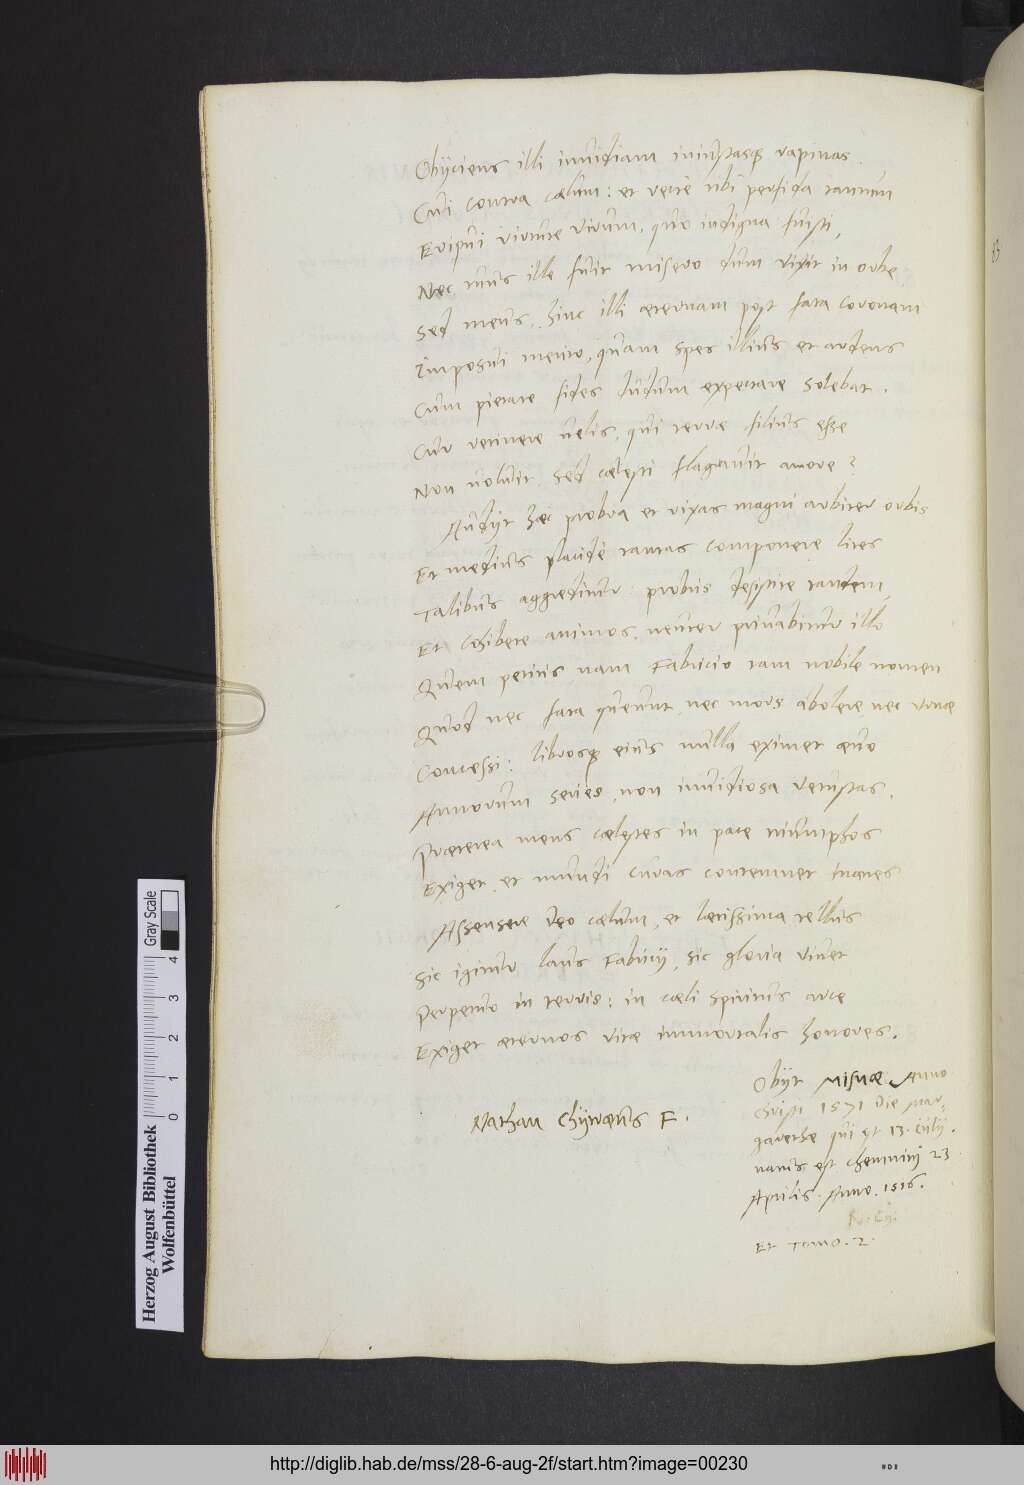 Obijciens illi inuidiam iniustasq́ rapinas.
Cui contra cælum: et recte tibi perfida tantum
Eripui virtute virum, quo indigna fuisti,
Nec tuus ille fuit misero dum vixit in orbe
Sed meus. hinc illi æternam post fata coronam
Imposui merito, quam spes illius et ardens
Cum pietate fides dudum expectare solebat.
Cur retinere uelis, qui terræ filius esse
Non uoluit, sed cælesti flagrauit amore?
Audijt hæc probra et rixas magni arbiter orbis
Et medius placidè tantas componere lites
Talibus aggreditur: probris desistite tandem,
Et cohibete animos. neuter priuabitur illo
Quem petitis, nam Fabricio tam nobile nomen
Quod nec fata queunt, nec mors abolere, nec
Concessi: librosq́ eius nulla eximet æuo
Annorum series, non inuidiosa vetustas.
Præterea mens cælestes in pace triumphos
Exiget, et mundi curas contemnet inanes
Assensere deo cælum, et lætissima tellus
Sic igitur laus Fabricij, sic gloria viuet
Perpetuo in terris: in cæli spiritus arce
Exiget æternos vitæ immortalis honores.
Nathan Chytræus F.
Obijt Misnæ Anno
Christi 1571 die Mar-
garethæ qui est 13. Iulij.
natus est Chemnicij 23
Aprilis. Anno. 1516.
N. Ch.
Et Tomo. 2.
83
Herzog August Bibliothek
Wolfenbüttel
Gray Scale
0 1 2 3 4
http://diglib.hab.de/mss/28-6-aug-2f/start.htm?image=00230